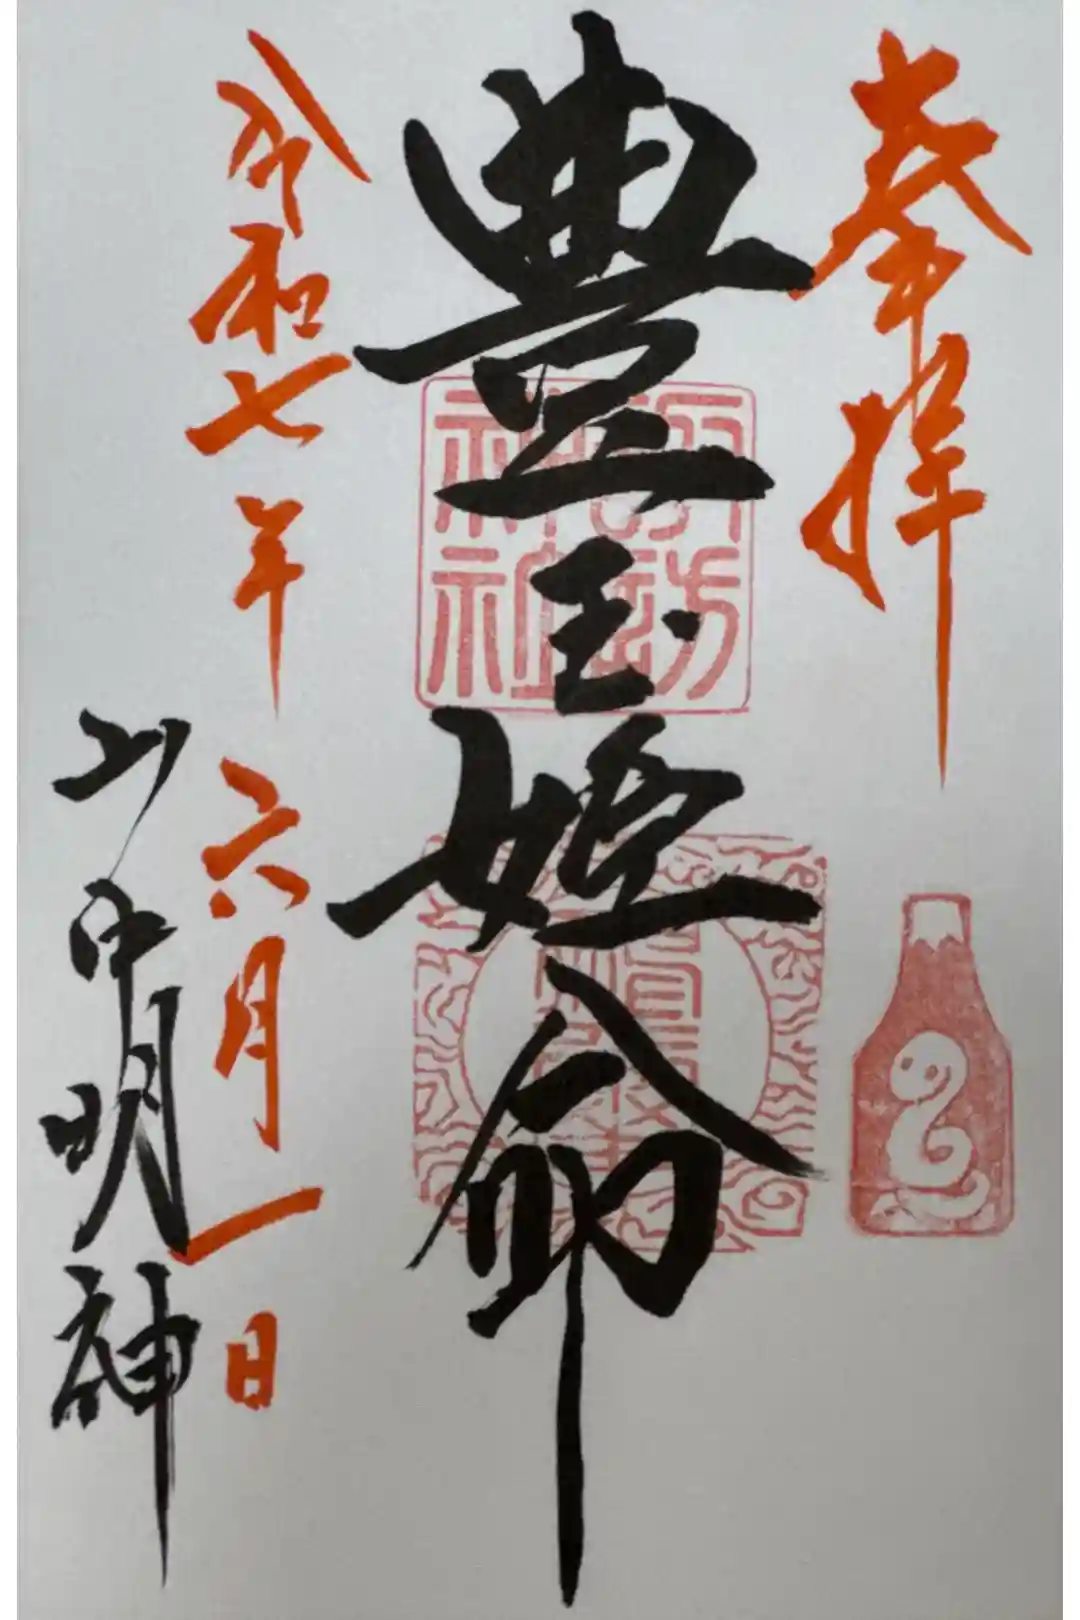 奉拝
豊玉姫命
令和七年六月一日
山中明神